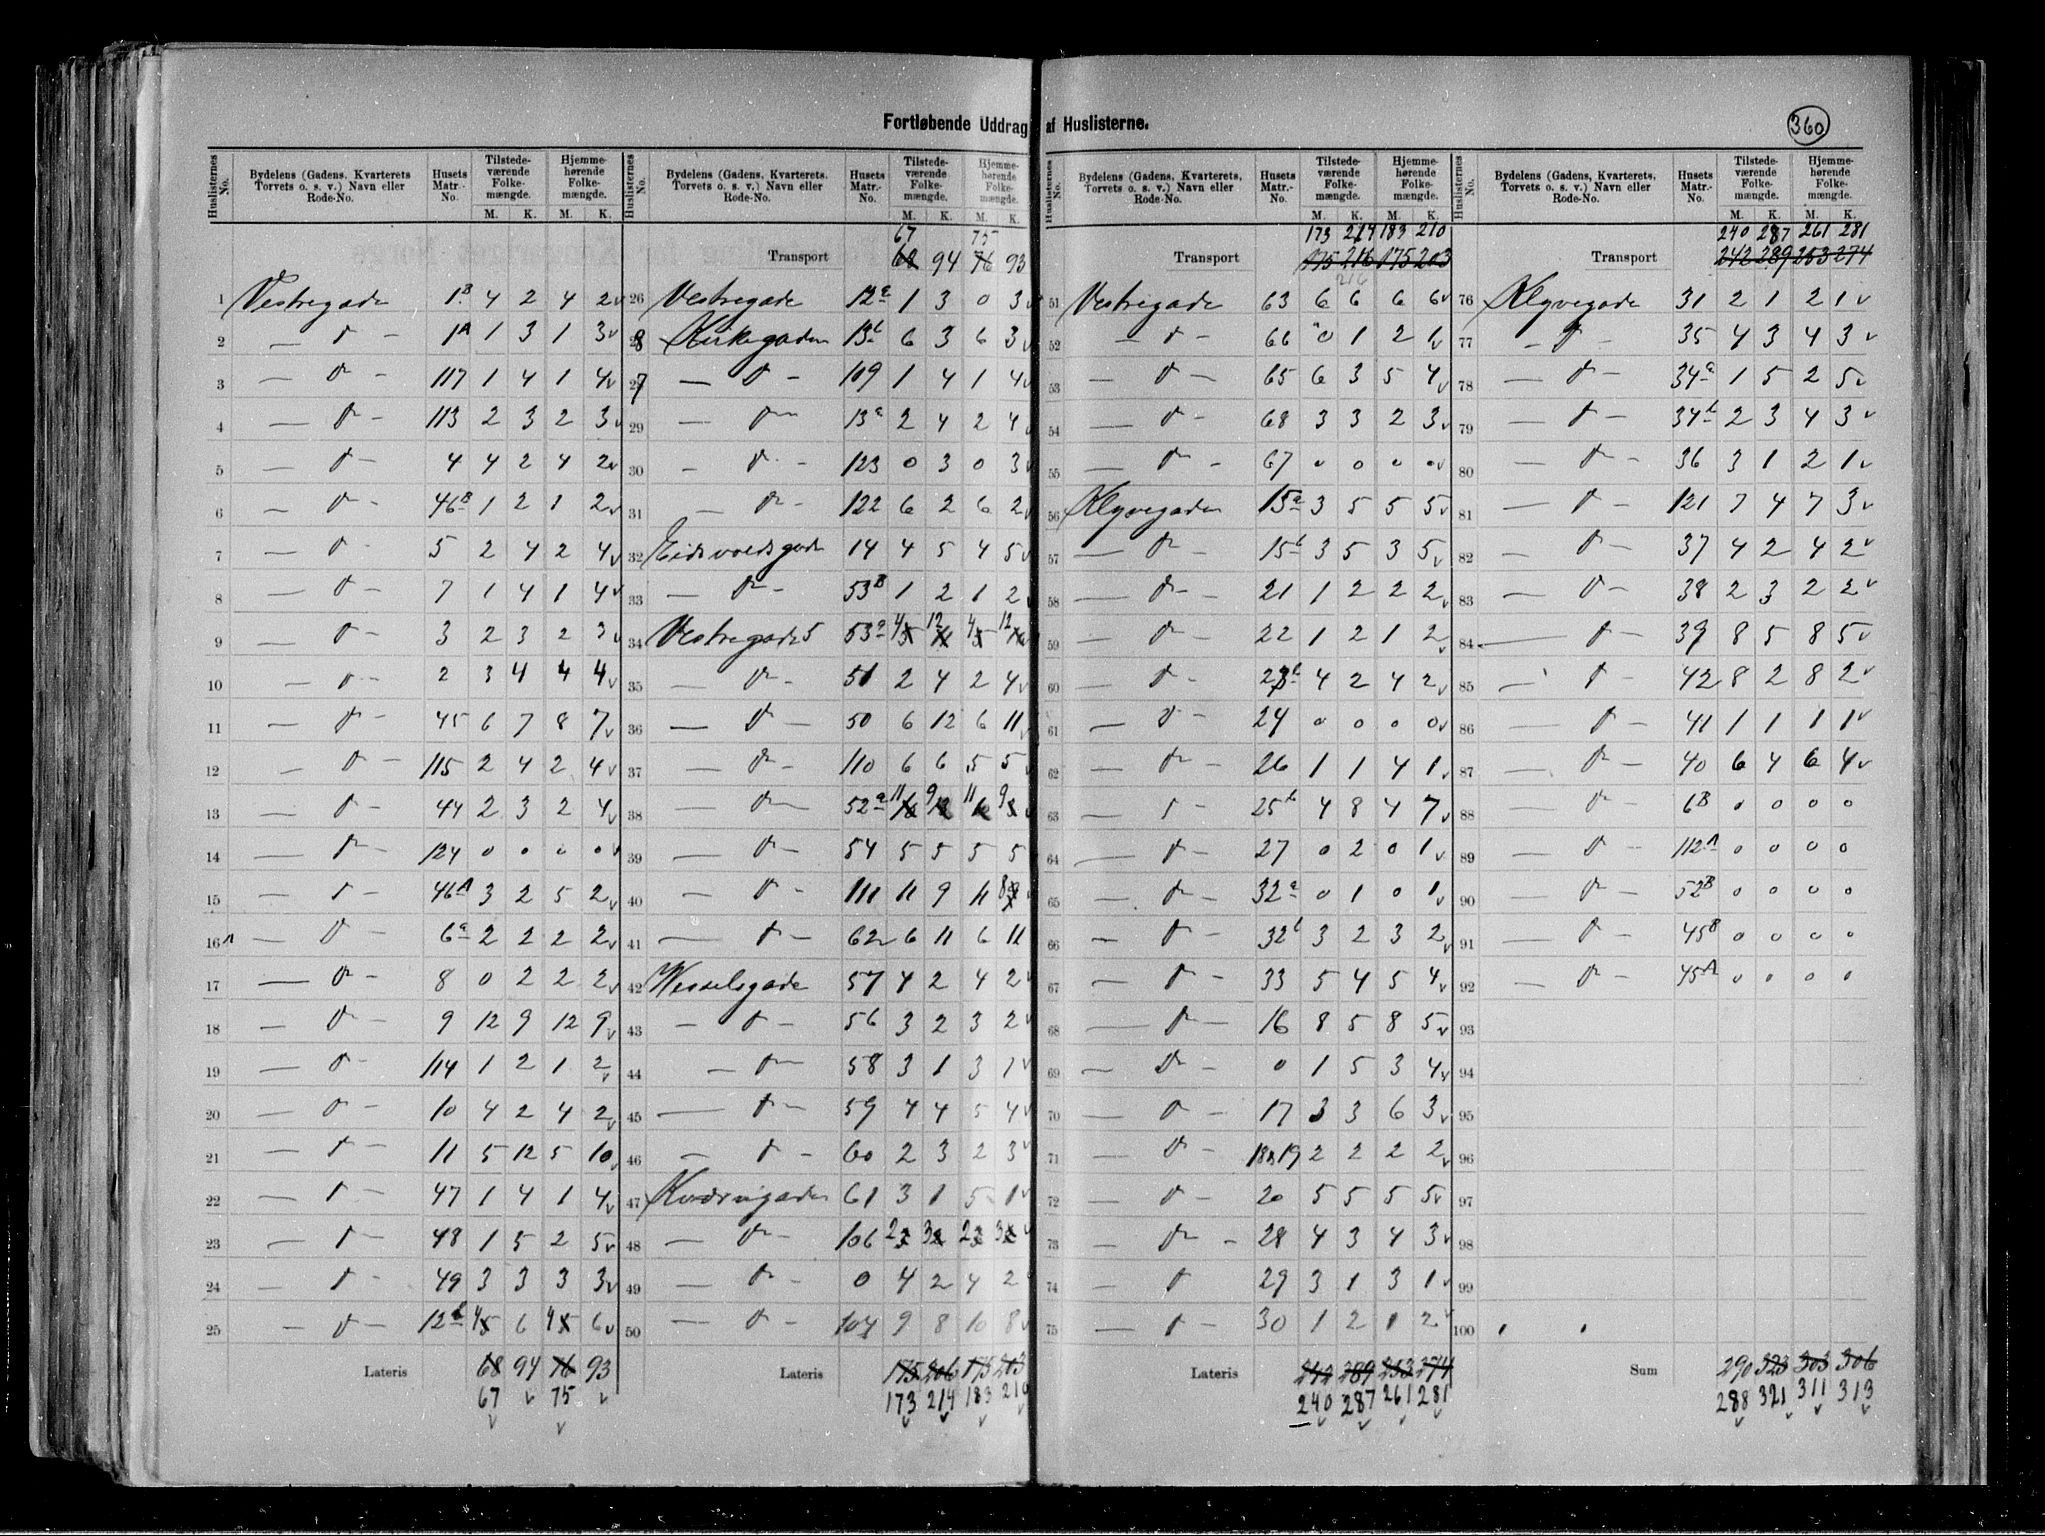 Fortløbende Uddrag af Huslisterne.
360
Huslisternes No. | Bydelens (Gadens, Kvarterets, Torvets o. s. v.) Navn eller Rode-No. | Husets Matr.-No. | Tilstedeværende Folkemængde. M. K. | Hjemmehørende Folkemængde. M. K.
1 Vestregade 1B 4 2 4 2
2 — d — 1A 1 3 1 3
3 — d — 117 1 4 1 4
4 — d — 113 2 3 2 3
5 — d — 4 4 2 4 2
6 — d — 46B 1 2 1 2
7 — d — 5 2 4 2 4
8 — d — 7 1 4 1 4
9 — d — 3 2 3 2 3
10 — d — 2 3 4 4 4
11 — d — 45 6 7 8 7
12 — d — 115 2 4 2 4
13 — d — 44 2 3 2 4
14 — d — 124 0 0 0 0
15 — d — 46A 3 2 5 2
16 — d — 6a 2 2 2 2
17 — d — 8 0 2 2 2
18 — d — 9 12 9 12 9
19 — d — 114 1 2 1 2
20 — d — 10 4 2 4 2
21 — d — 11 5 12 5 10
22 — d — 47 1 4 1 4
23 — d — 48 1 5 2 5
24 — d — 49 3 3 3 3
25 — d — 12b 4 6 4 6
Lateris 68 94 76 93
67 75
Huslisternes No. | Bydelens (Gadens, Kvarterets, Torvets o. s. v.) Navn eller Rode-No. | Husets Matr.-No. | Tilstedeværende Folkemængde. M. K. | Hjemmehørende Folkemængde. M. K.
67 75
Transport 68 94 76 93
26 Vestregade 12a 1 3 0 3
28 Kirkegaden 13b 6 3 6 3
27 — d — 109 1 4 1 4
29 — d — 13a 2 4 2 4
30 — d — 123 0 3 0 3
31 — d — 122 6 2 6 2
32 Eidsvoldsgade 14 4 5 4 5
33 — d — 53B 1 2 1 2
34 Vestregade 5 53a 4 12 4 12
35 — d — 51 2 4 2 4
36 — d — 50 6 12 6 11
37 — d — 110 6 6 5 5
38 — d — 52a 11 9 11 9
39 — d — 54 5 5 5 5
40 — d — 111 11 9 11 8
41 — d — 62 6 11 6 11
42 Wesselsgade 57 4 2 4 2
43 — d — 56 3 2 3 2
44 — d — 58 3 1 3 1
45 — d — 59 4 4 5 4
46 — d — 60 2 3 2 3
47 61 3 1 5 1
48 — d — 106 2 3 2 3
49 — d — 0 4 2 4 2
50 — d — 107 9 8 10 8
Lateris 175 206 175 203
173 214 183 210
Huslisternes No. | Bydelens (Gadens, Kvarterets, Torvets o. s. v.) Navn eller Rode-No. | Husets Matr.-No. | Tilstedeværende Folkemængde. M. K. | Hjemmehørende Folkemængde. M. K.
173 214 183 210
Transport 175 216 175 203
216
51 Vestregade 63 6 6 6 6
52 — d — 66 0 1 2 1
53 — d — 65 6 3 5 4
54 — d — 68 3 3 2 3
55 — d — 67 0 0 0 0
56 Klyvegaden 15a 3 5 5 5
57 — d — 15b 3 5 3 5
58 — d — 21 1 2 2 2
59 — d — 22 1 2 1 2
60 — d — 23b 4 2 4 2
61 — d — 24 0 0 0 0
62 — d — 26 1 1 4 1
63 — d 25b 4 8 4 7
64 — d — 27 0 2 0 1
65 — d — 32a 0 1 0 1
66 — d — 32b 3 2 3 2
67 — d — 33 5 4 5 4
68 — d — 16 8 5 8 5
69 — d — 0 1 5 3 4
70 — d — 17 3 3 6 3
71 — d — 18 19 2 2 2 2
72 — d — 20 5 5 5 5
73 — d — 28 4 3 4 3
74 — d 29 3 1 3 1
75 — d — 30 1 2 1 2
Lateris 242 289 253 274
240 287 261 281
Huslisternes No. | Bydelens (Gadens, Kvarterets, Torvets o. s. v.) Navn eller Rode-No. | Husets Matr.-No. | Tilstedeværende Folkemængde. M. K. | Hjemmehørende Folkemængde. M. K.
240 287 261 281
Transport 242 289 253 274
76 Klyvegade 31 2 1 2 1
77 — d — 35 4 3 4 3
78 — d — 34a 1 5 2 5
79 — d — 34b 2 3 4 3
80 — d — 36 3 1 2 1
81 — d — 121 7 4 7 3
82 — d — 37 4 2 4 2
83 — d — 38 2 3 2 2
84 — d — 39 8 5 8 5
85 — d — 42 8 2 8 2
86 — d — 41 1 1 1 1
87 — d — 40 6 4 6 4
88 — d — 6B 0 0 0 0
89 — d — 112A 0 0 0 0
90 — d — 52B 0 0 0 0
91 — d — 45B 0 0 0 0
92 — d — 45A 0 0 0 0
93
94
95
96
97
98
99
100
Sum 290 323 303 306
288 321 311 313